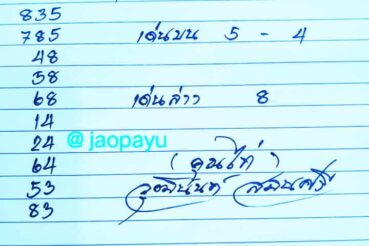 835
785 เด่นบน 5 - 4
48
58
68 เด่นล่าง 8
14
24 @jaopayu
64 (คุณไก่)
53
83